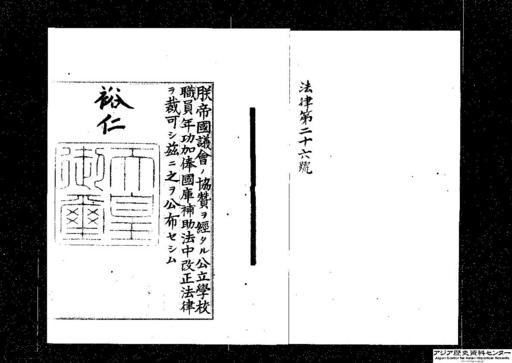 法律第二十六號
朕帝國議會ノ協贊ヲ經タル公立學校
職員年功加俸國庫補助法中改正法律
ヲ裁可シ茲ニ之ヲ公布セシム
裕仁
天皇
御璽
アジア歴史資料センター
Japan Center for Asian Historical Records